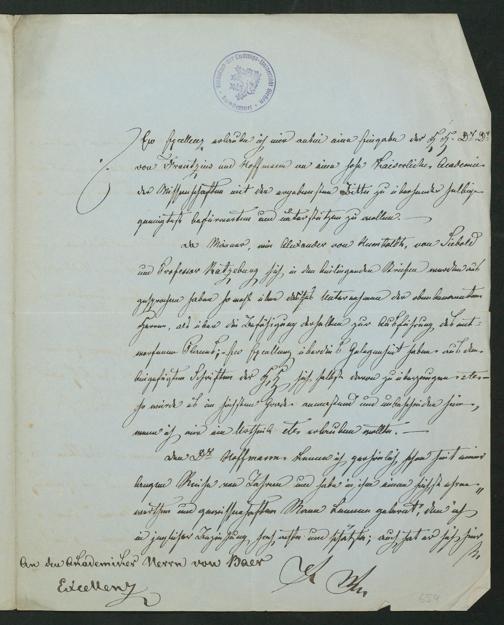 Ew Excellenz erlaube ich mir anbei eine Eingabe der H. H. Dr. Dr.
von Frantzius und Hoffmann an eine hohe Kaiserliche Academie
der Wissenschaften mit der ergebensten Bitte zu übersenden selbige
geneigtest befürworten und unterstützen zu wollen. —
Da Männer, wie Alexander von Humboldt, von Siebold
und Professor Ratzeburg sich, in den beiliegenden Briefen
gesprochen haben sowohl über dieses Unternehmen der obenbenannten
Herren, als über die Befähigung derselben zur Ausführung des ent-
worfenen Planes; Ew Excellenz überdies Gelegenheit haben aus den
beigefügten Schriften der H. H. sich selbst davon zu überzeugen
so würde es im höchsten Grade anmassend und unbescheiden sein,
wenn ich mir ein Urtheil erlauben wollte. —
Den Dr. Hoffmann kenne ich persönlich schon seit einer
langen Reihe von Jahren und habe in ihm einen höchst ehren-
werthen und gewissenhaften Mann kennen gelernt den ich
in jeglicher Beziehung hoch achte und schätze; auch hat er sich hier
An den Akademiker Herrn von Baer
Excellenz
654